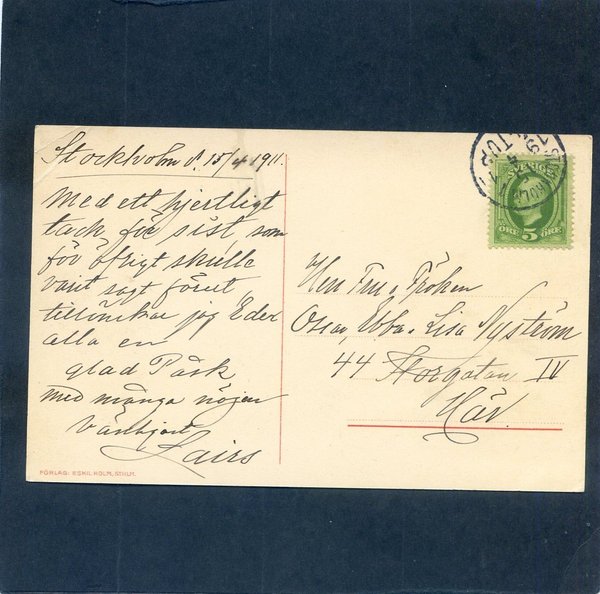 Stockholm d. 15/4 1911.
Med ett hjertligt
tack för sist som
för öfrigt skulle
varit sagt förut
tillönskar jag Eder
alla en
glad Påsk
med många nöjen
Vänligt
FÖRLAG: ESKIL HOLM, STHLM.
SVERIGE
ÖRE 5 ÖRE
Herr Fru o Fröken
Oscar, Ebba o Lisa Nyström
44 Storgatan IV
Här.